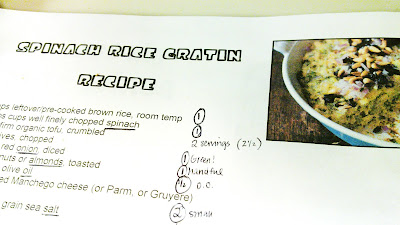 SPINACH RICE GRATIN
RECIPE
ps leftover/pre-cooked brown rice, room temp 1
s cups well finely chopped spinach 1
firm organic tofu, crumbled 2 servings (2 1/2)
ves, chopped
red onion, diced 1 Green!
nuts or almonds, toasted 1 handful
olive oil
ed Manchego cheese (or Parm, or Gruyère) 1/2 O.C.
grain sea salt 2 small